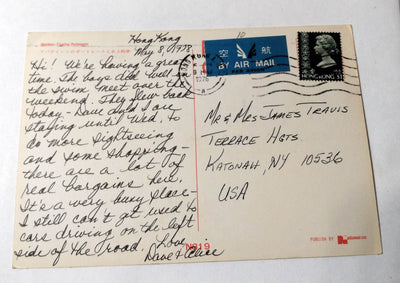 Hong Kong
May 8, 1978
Hi! We're having a great
time. The boys did well in
the swim meet over the
weekend. They flew back
today - Dave and I are
staying until Wed. to
do more sightseeing
and some shopping -
there are a lot of
real bargains here.
It's a very busy place -
I still can't get used to
cars driving on the left
side of the road. Love,
Dave & Alice
空 航
BY AIR MAIL
1978
HONG KONG
Mr & Mrs James Travis
Terrace Hgts.
Katonah, NY 10536
USA